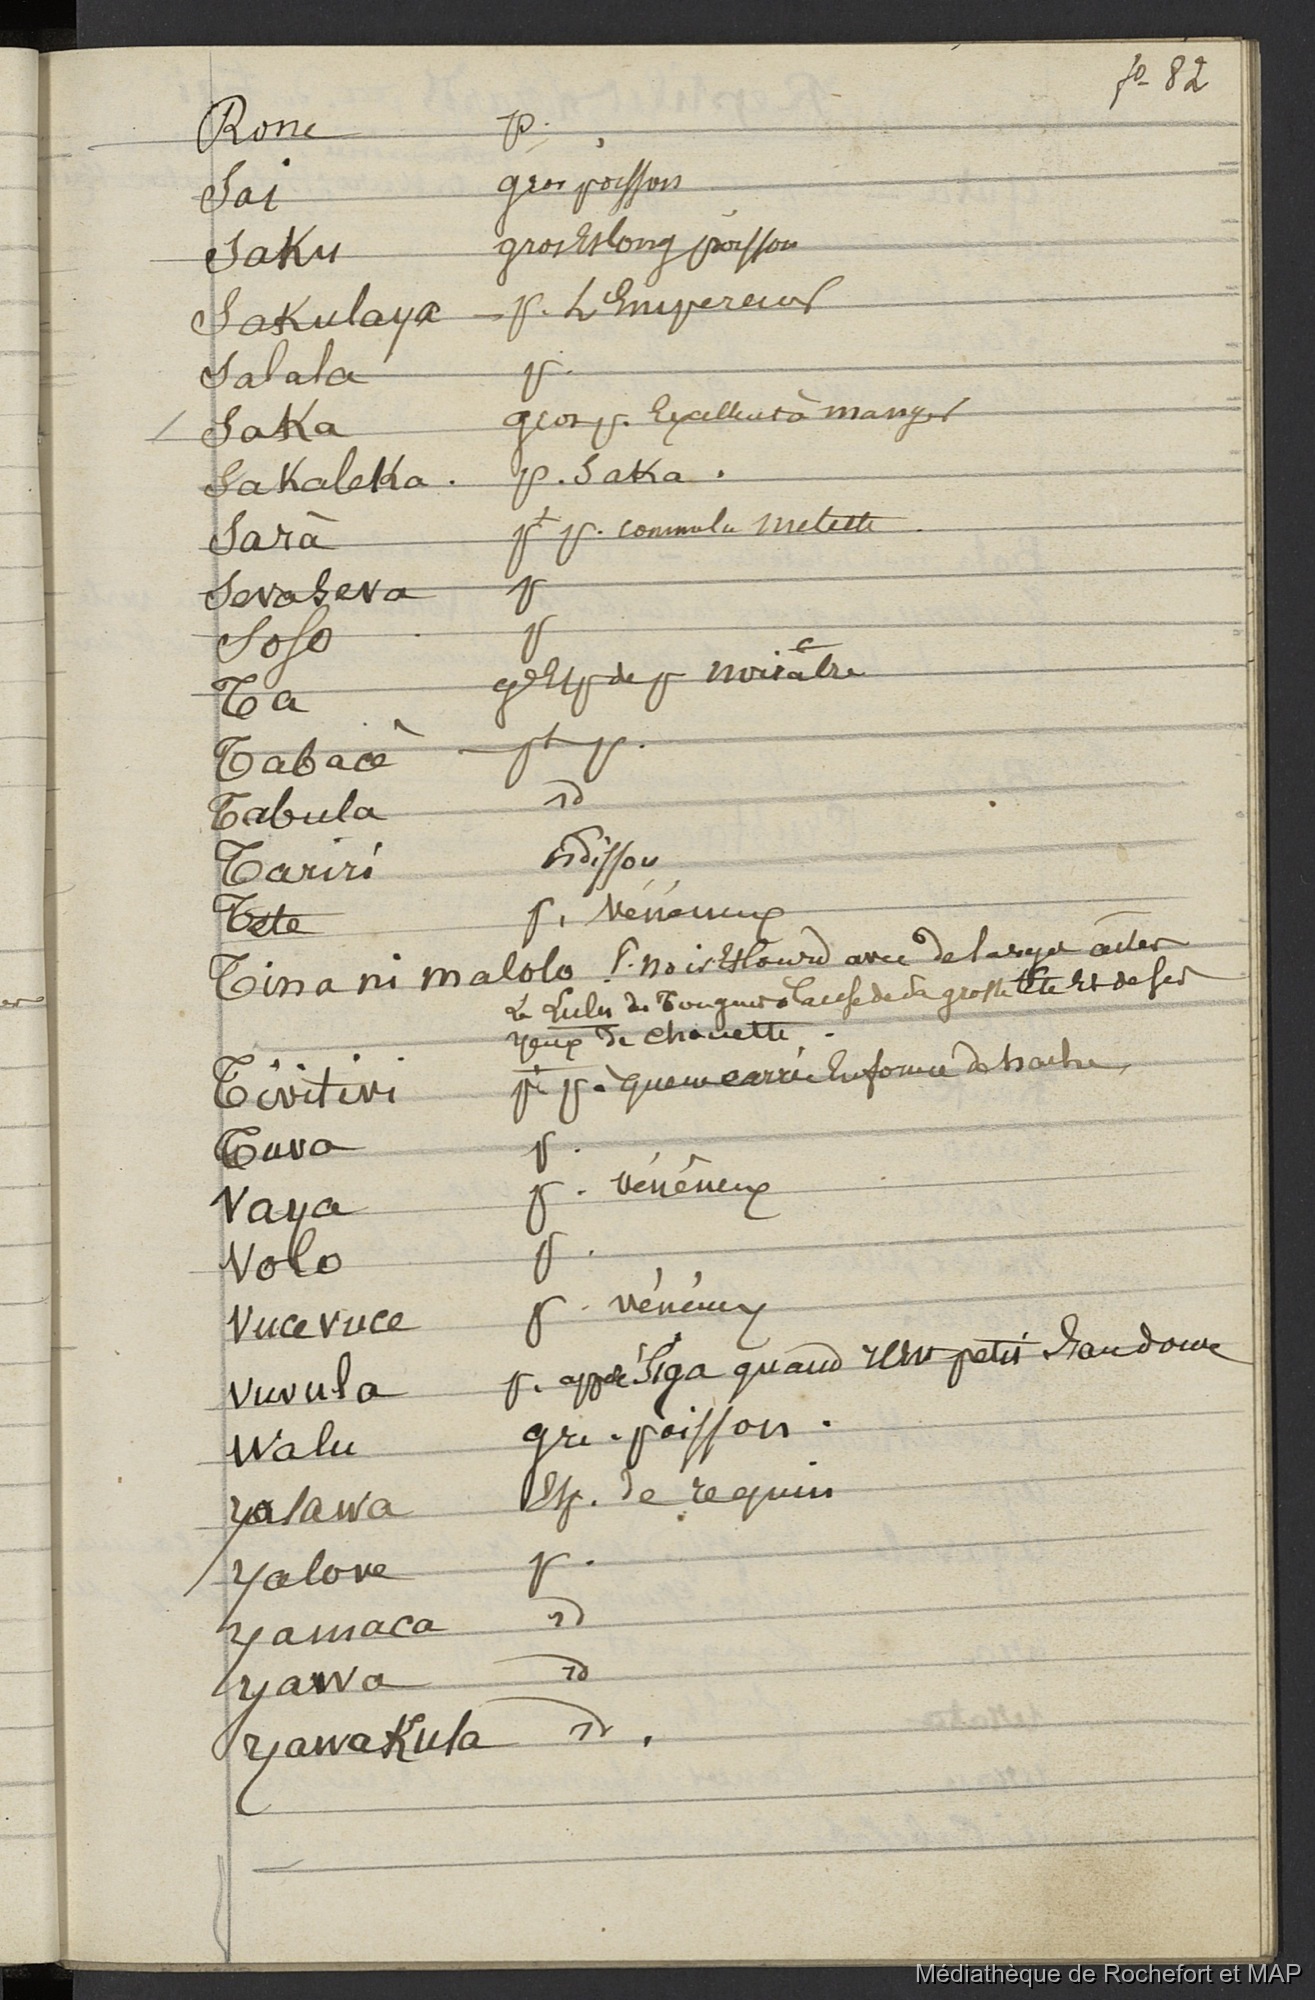 fo 82
Rone p.
Sai gros poisson
Saku gros Et long poisson
Sakulaya – p. L'Empereur
Salala p.
Saka gros p. Excellent à manger
Sakaleka . p. Saka .
Sarà pt p. comme la melette .
Sevaseva p
Soso p
Ta gde Esp de p noirâtre
Tabacè – pt p.
Tabula id
Tariri poisson
Tete p. vénéneux
Tina ni malolo P. noir Et lourd avec de larges ailes
Le de Tongues à cause de sa grosse tête Et de ses
yeux de chouette .
Tivitivi pt p. à queue carrée En forme de hache
Tuva p.
Vaya p. vénéneux
Volo p.
Vucevuce p. vénéneux
Vuvula p. appelé Siga quand il Est petit Eau douce
Walu gr . poisson .
Yalawa Esp. de requin
Yalove p.
Yamaca id
Yawa id
Yawakula id .
Médiathèque de Rochefort et MAP